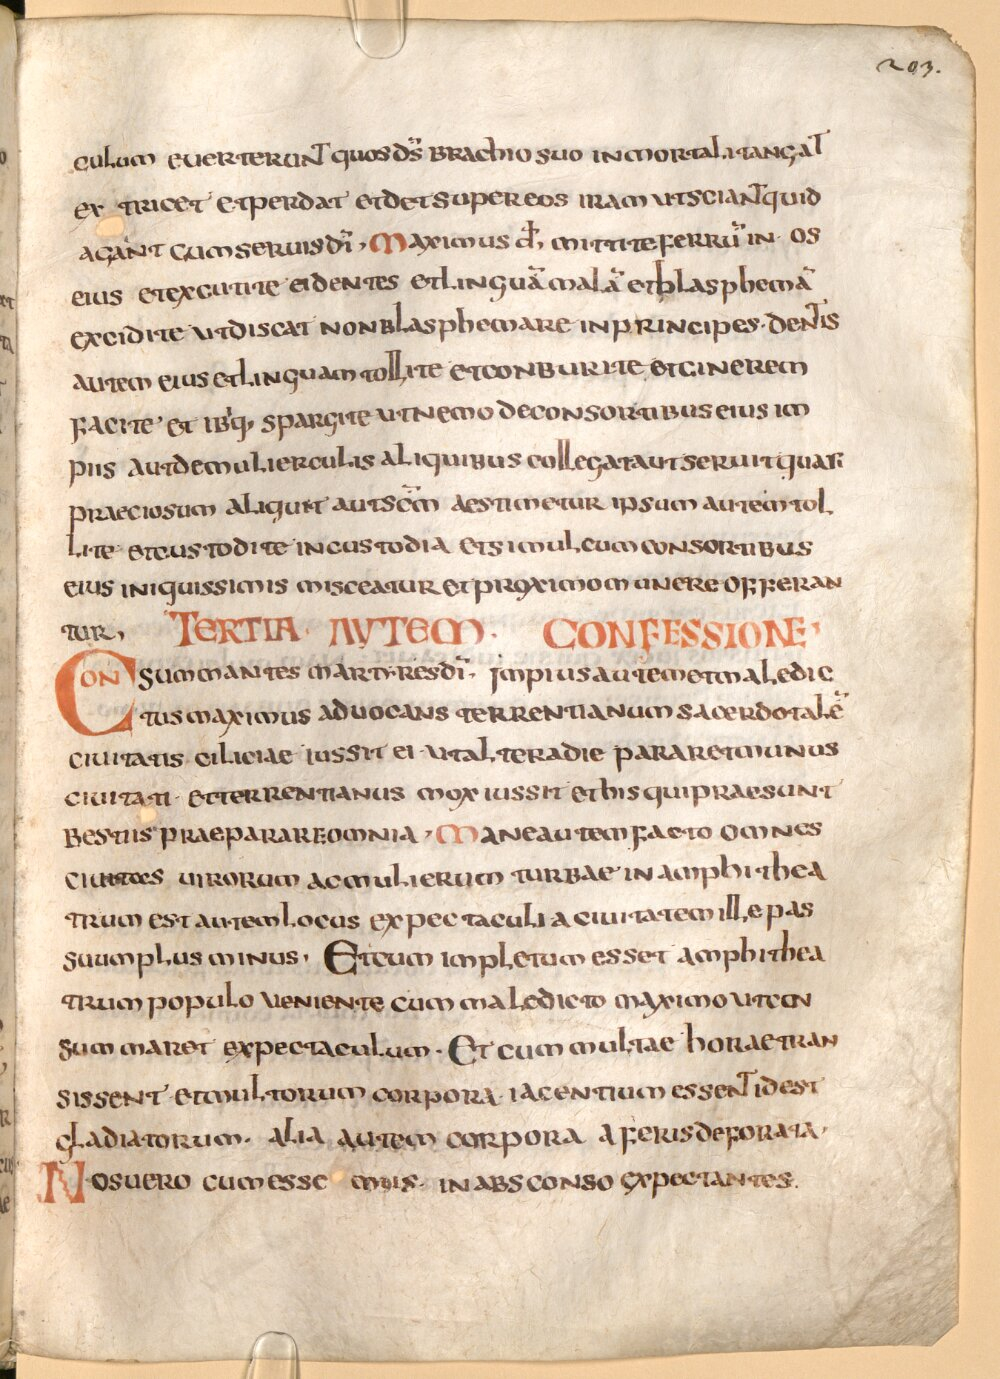 203.
culum euerterunt quos ds̄ brachio suo inmortali tangat
ex tricet et perdat et det super eos iram ut sciant quid
agant cum seruis dī, Maximus d̄, mittite ferrū in os
eius et excutite ei dentes et linguā malā et blasphemā
excidite ut discat non blasphemare in principes· dentis
autem eius et linguam tollite et conburite et cinerem
facite· et ibiq; spargite ut nemo de consortibus eius im
piis aut de mulierculis aliquibus collegat aut seruit quasi
praeciosum aliquit aut sc̄m aestimetur ipsum autem tol
lite et custodite in custodia et simul cum consortibus
eius iniquissimis misceatur et proximo munere offeran
tur, TERTIA· AUTEM· CONFESSIONE·
CONsummantes martyres dī· impius autem et maledic
tus maximus aduocans terrentianum sacerdotalē
ciuitatis ciliciae iussit ei ut altera die pararet munus
ciuitati· et terrentianus mox iussit et his qui praesunt
bestiis praeparare omnia, Mane autem facto omnes
uirorum ac mulierum turbae in amphithea
trum est autem locus expectaculi a ciuitatem ille pas
suum plus minus, Et cum impletum esset amphithea
trum populo ueniente cum maledicto maximo ut con
summaret expectaculum· Et cum multae horae tran
sissent et multorum corpora iacentium essent id est
gladiatorum· alia autem corpora a feris deforata·
Nos uero cum esse mus· in absconso expectantes.